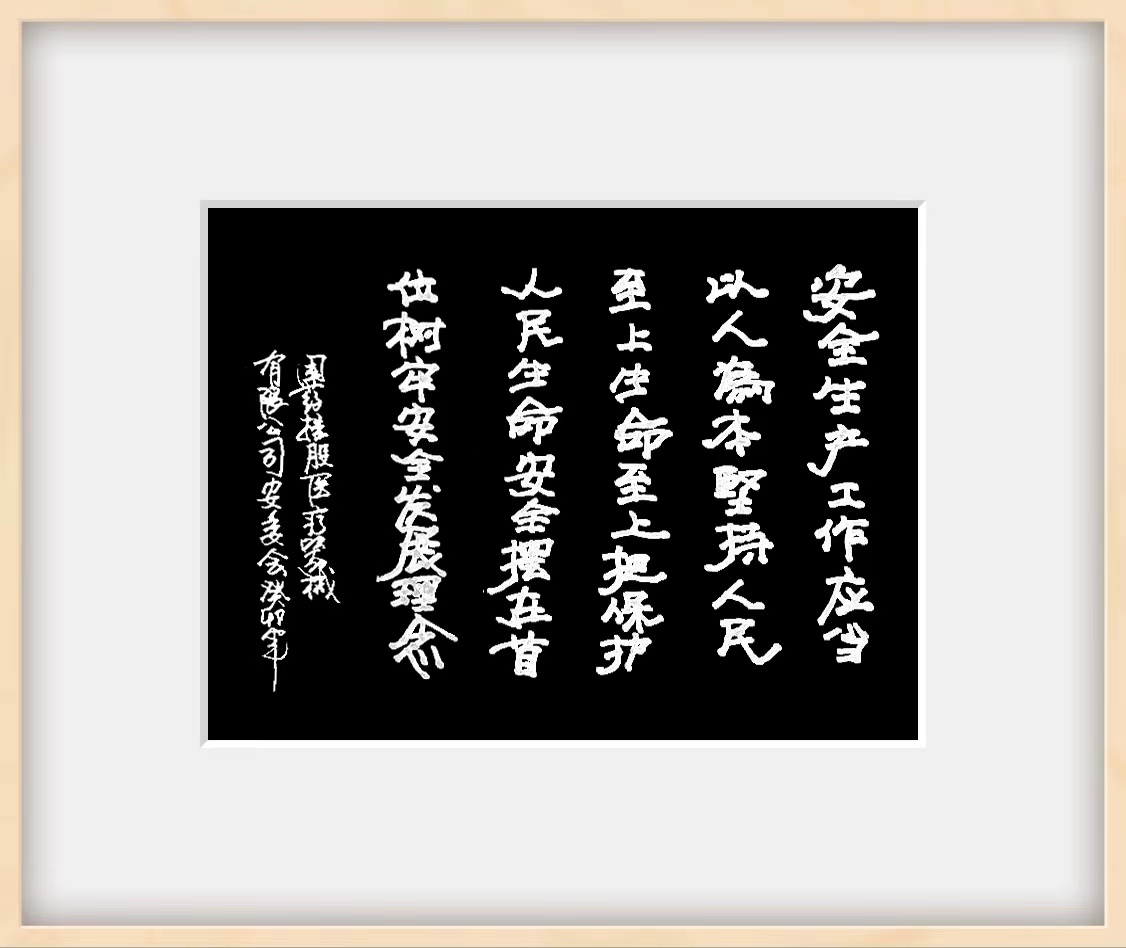 安全生产工作应当
以人為本堅持人民
至上生命至上把保护
人民生命安全摆在首
位树牢安全发展理念
国药控股医疗器械
有限公司安委会癸卯年